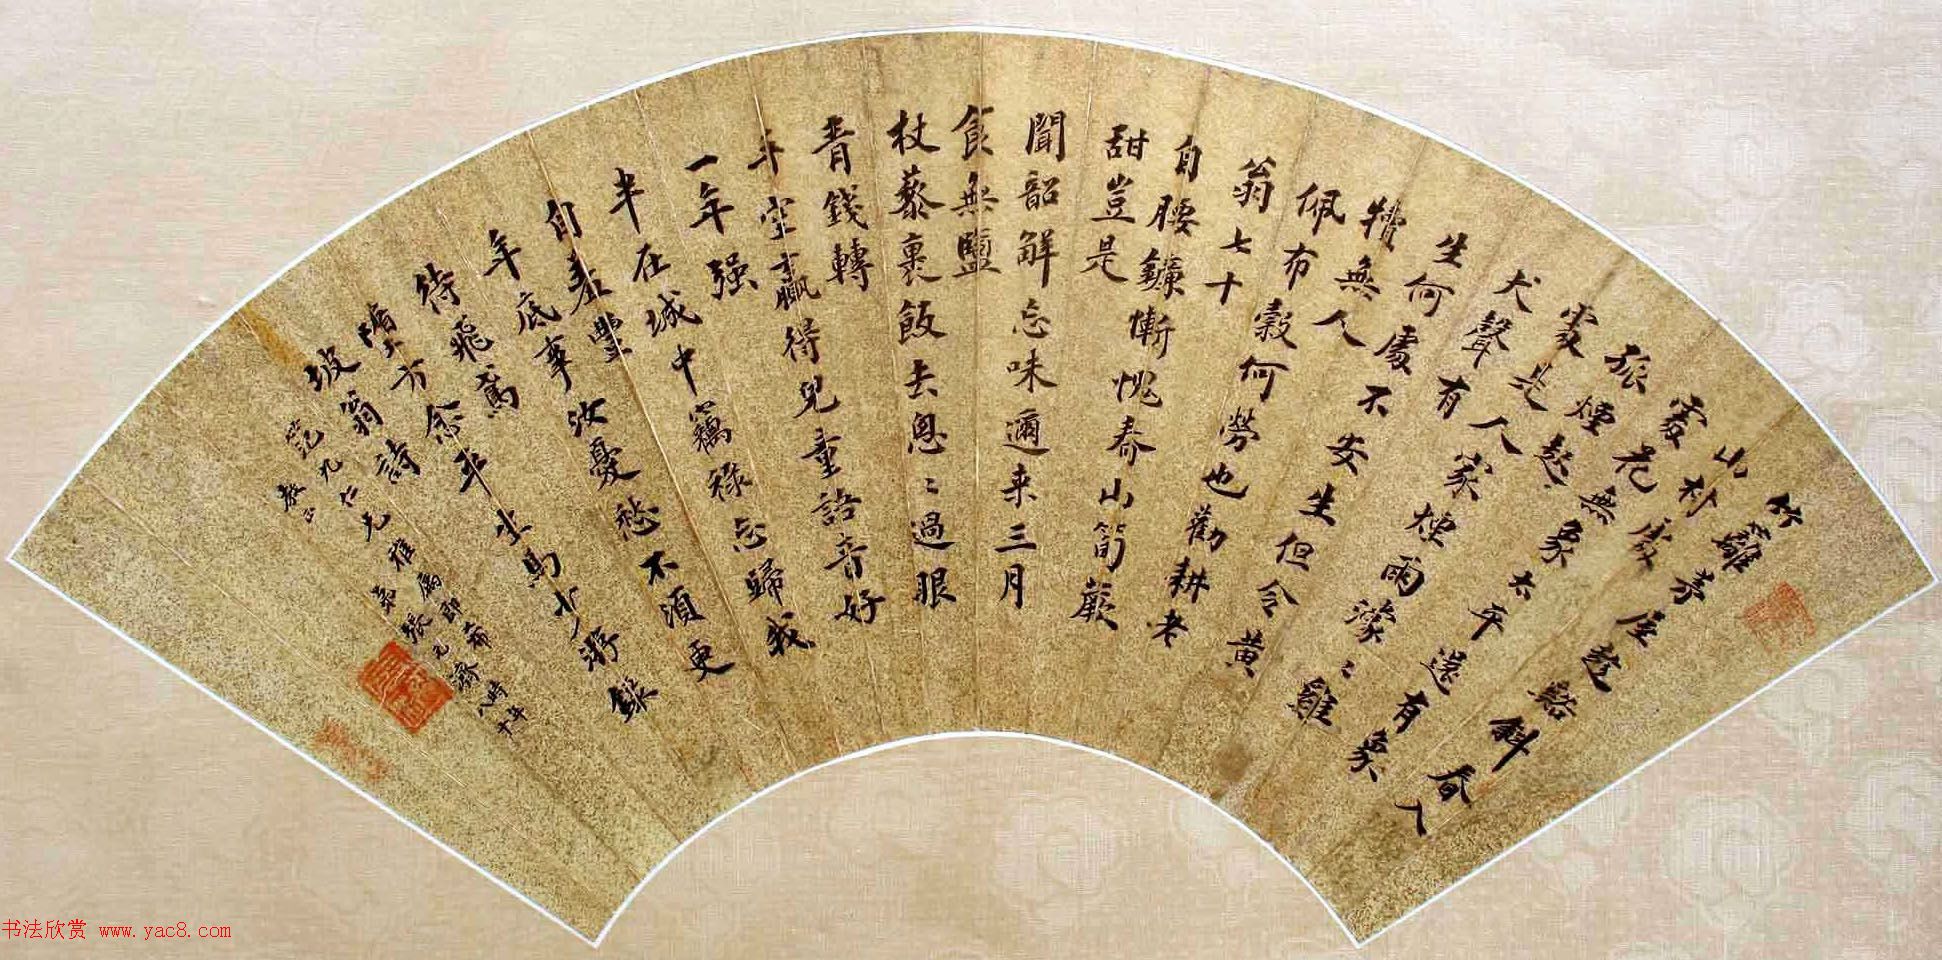 竹籬茅屋趁谿斜春入
山村處
處花無象太平還有象
孤煙起
處是人家煙雨濛〻雞
犬聲有
生何處不安生但令黃
犢無人
佩布穀何勞也勸耕老
翁七十
自腰鐮慚愧春山筍蕨
甜豈是
聞韶解忘味邇來三月
食無鹽
杖藜裹飯去匆〻過眼
青錢轉
手空贏得兒童語音好
一年強
半在城中竊祿忘歸我
自羞豐
年底事汝憂愁不須更
待飛鳶
墮方念平生馬少游錄
坡翁詩
范九仁兄雅屬即希
教正
弟張元濟
時年
八十
书法欣赏 www.yac8.com